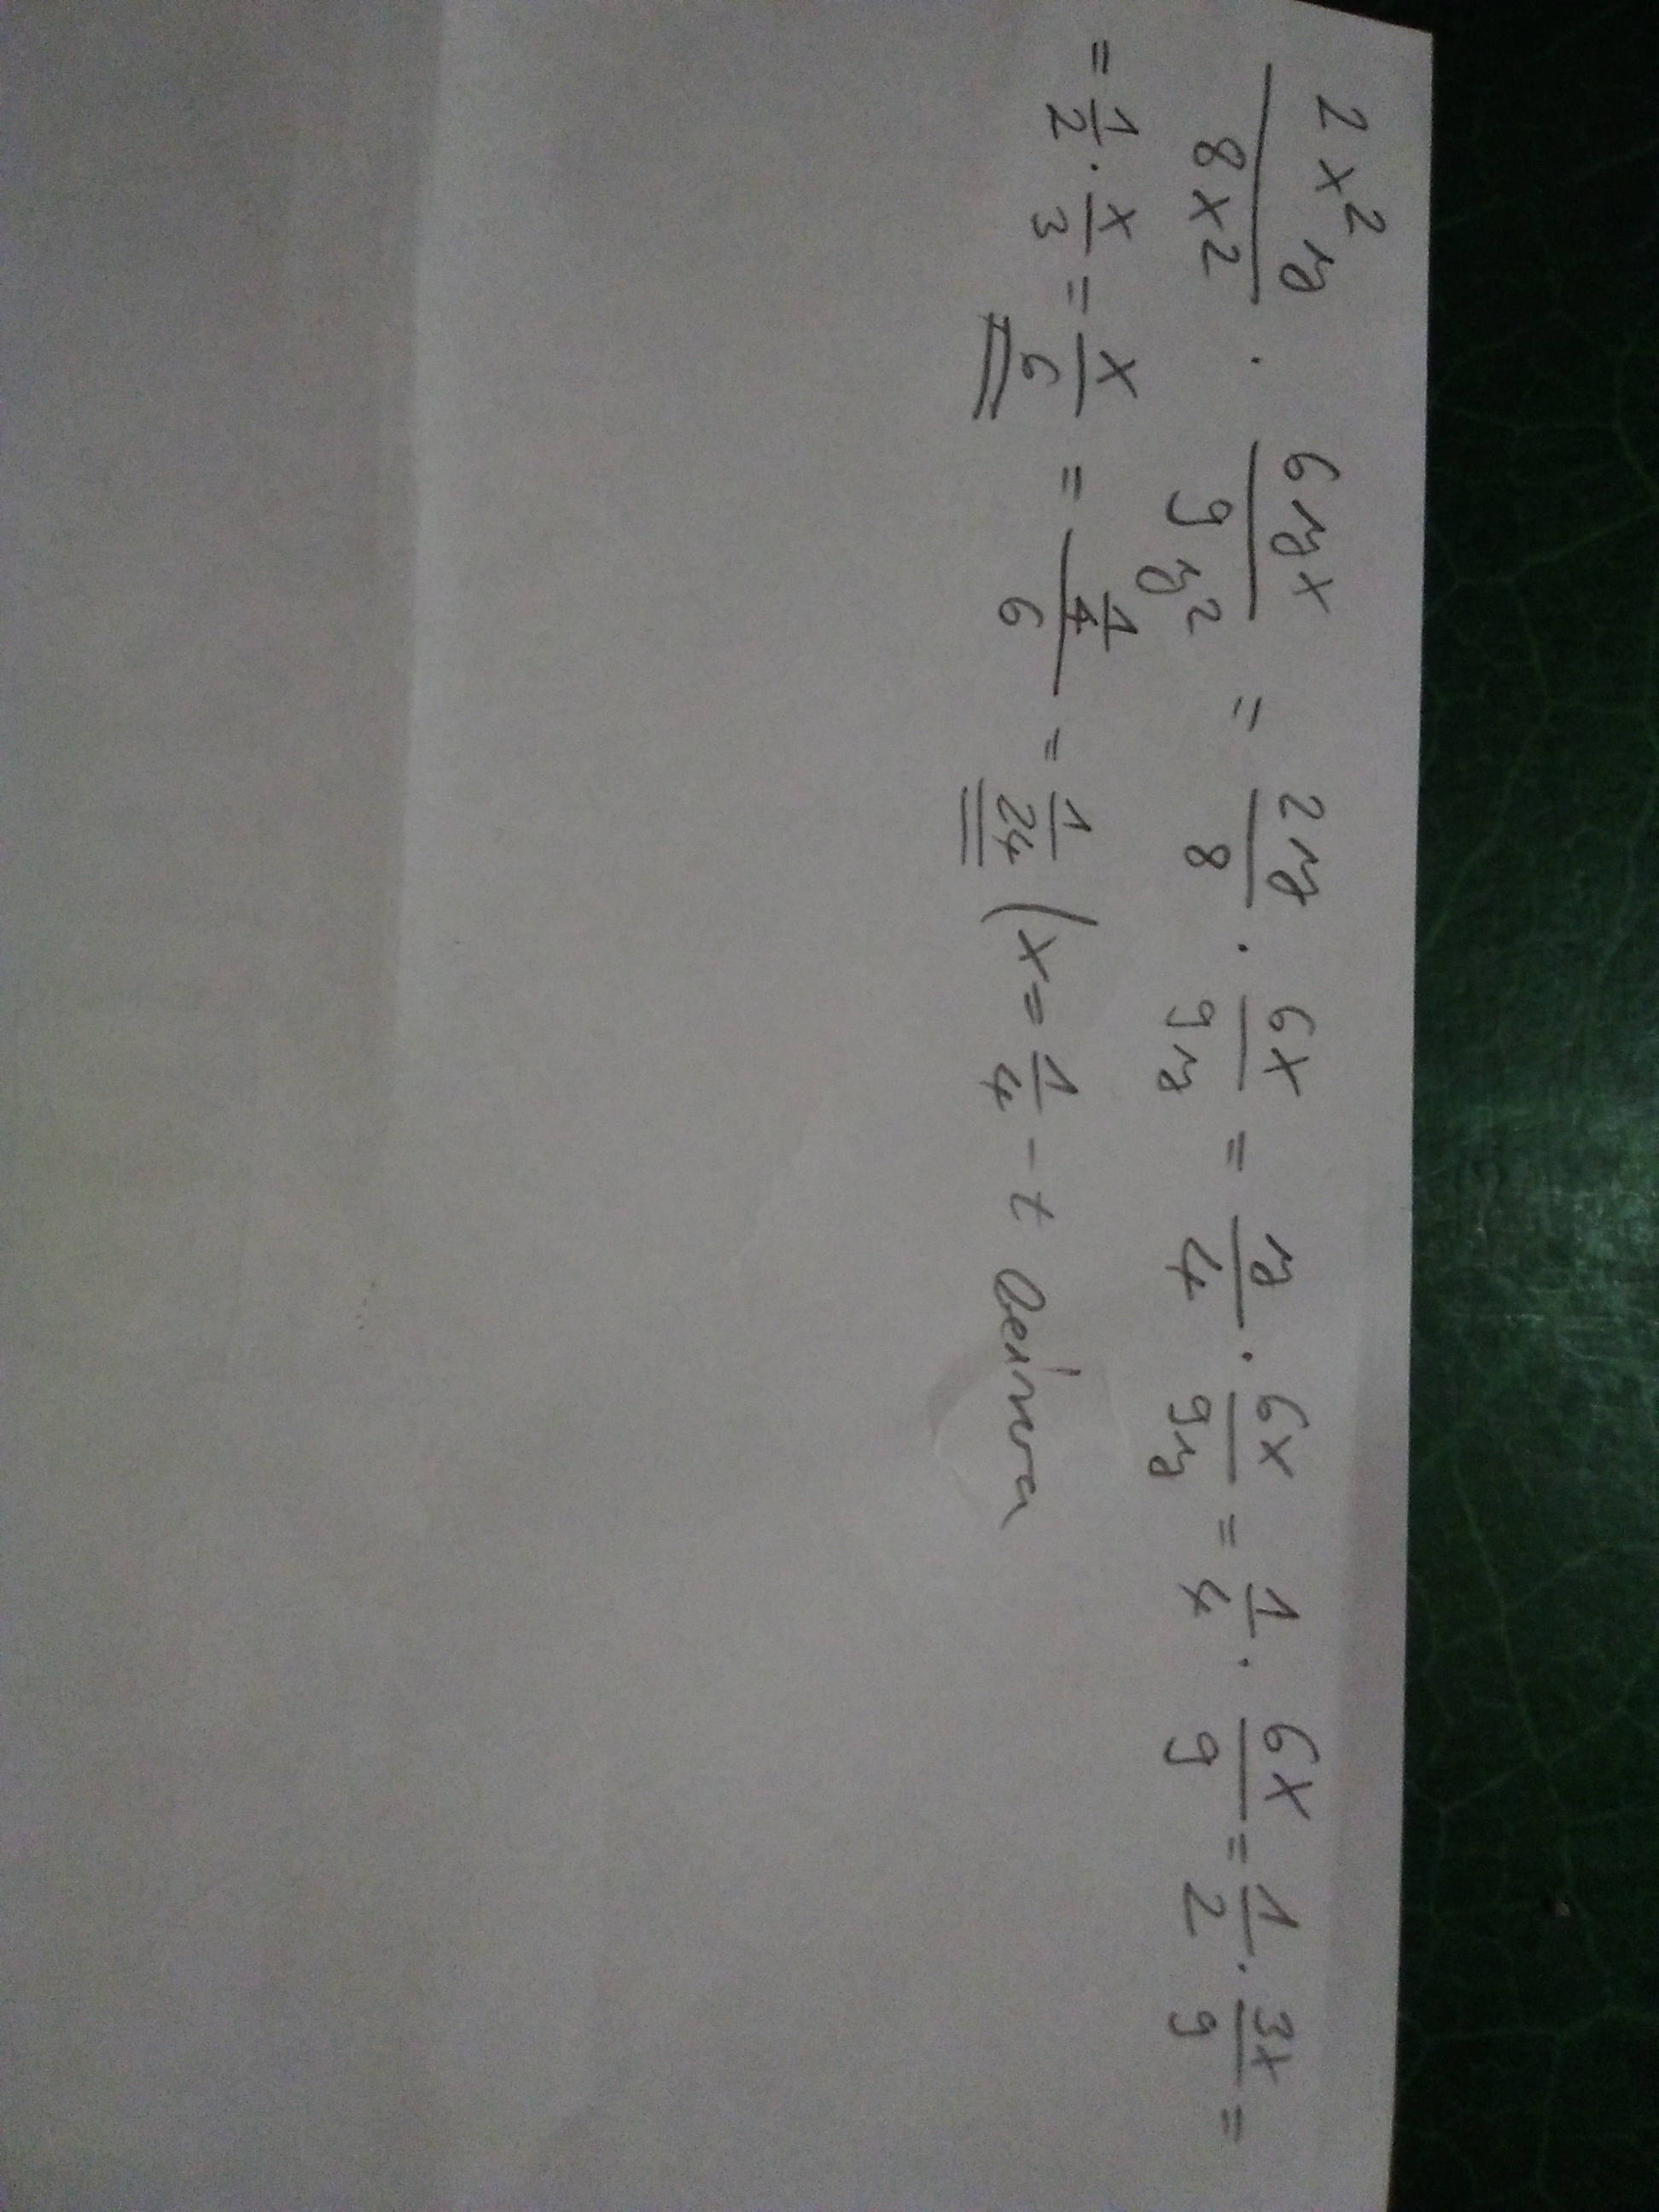 2x²y/8x² · 6yx/9y² = 2y/8 · 6x/9y = y/4 · 6x/9y = 1/4 · 6x/9 = 1/2 · 3x/9 =
= 1/2 · x/3 = x/6 = (1/4)/6 = 1/24 (x = 1/4 - t beírva